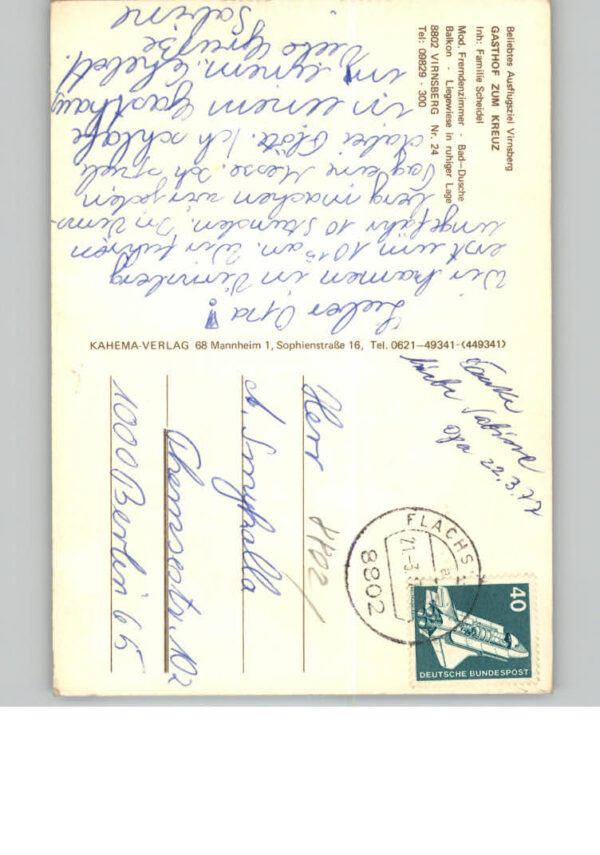 Beliebtes Ausflugsziel Virnsberg
GASTHOF ZUM KREUZ
Inh: Familie Scheidel
Mod. Fremdenzimmer - Bad-Dusche
Balkon - Liegewiese in ruhiger Lage
8802 VIRNSBERG Nr. 24
Tel: 09829 - 300
Lieber Opa!
Wir kamen in Virnsberg
erst um 10 15 an. Wir fuhren
ungefähr 10 Stunden. In Virns-
berg machen wir jeden
Tag eine Messe. Ich spiele
dabei Flöte. Ich schlafe
in einem Gasthaus
in einem
Viele Grüße
Sabine
KAHEMA-VERLAG 68 Mannheim 1, Sophienstraße 16, Tel. 0621-49341-(449341)
Danke
liebe Sabine
Opa 22.3.77
FLACHS
21-3.
8802
40
DEUTSCHE BUNDESPOST
8802
Herr
A.
102
1000 Berlin 65